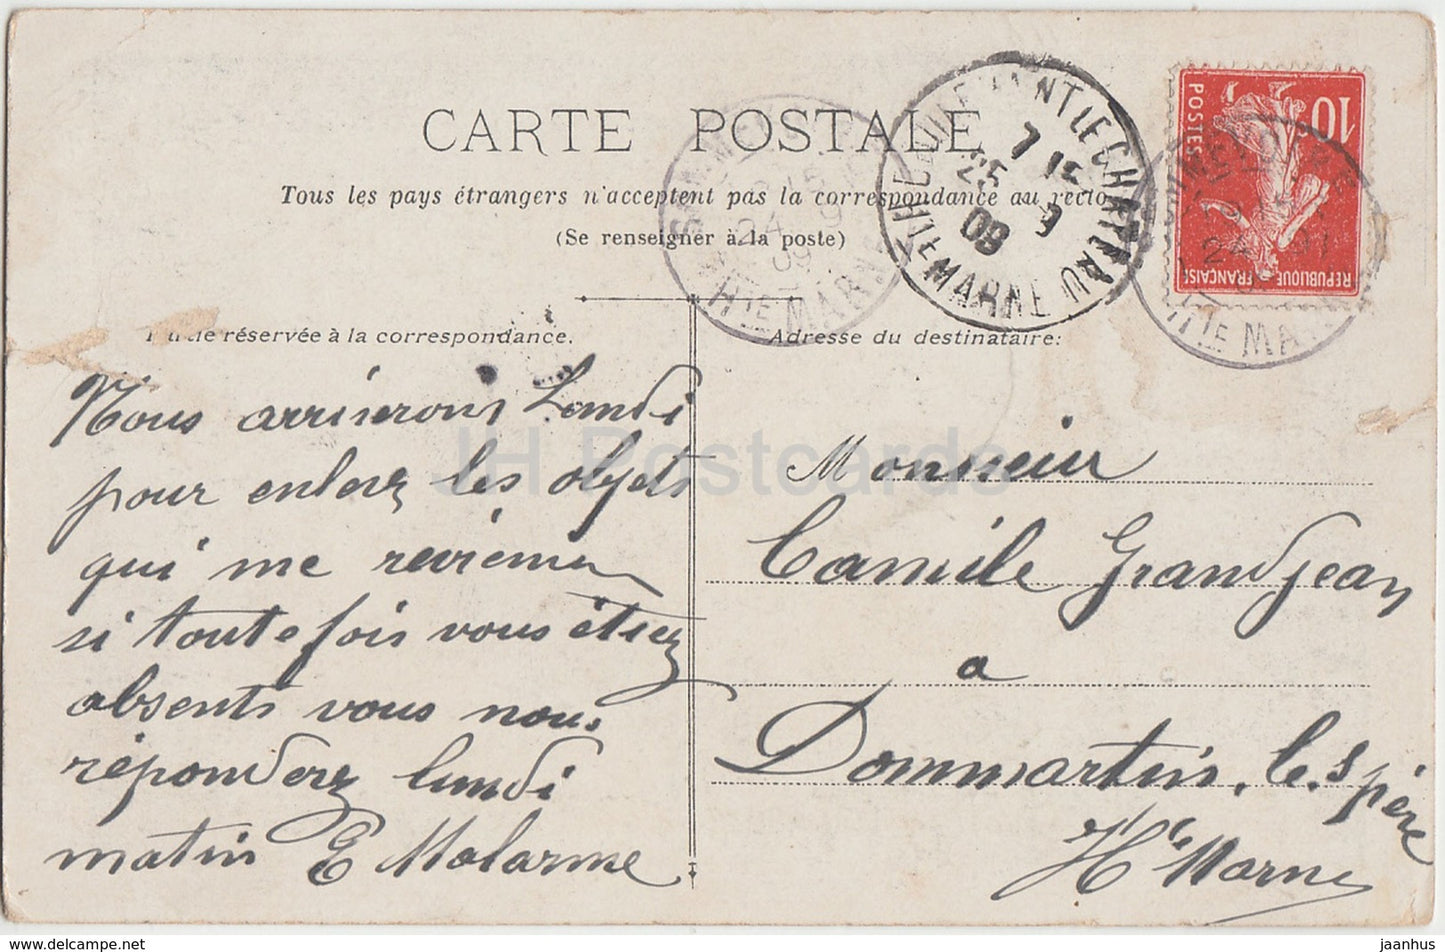 CARTE POSTALE
Tous les pays étrangers n'acceptent pas la correspondance au recto
(Se renseigner à la poste)
Partie réservée à la correspondance.
Adresse du destinataire:
Nous arriverons Lundi
pour enlever les objets
qui me reviennen
si toutefois vous étiez
absents vous nous
réponderez lundi
matin E Malarme
Monsieur
Camile Grandjean
a
Dommartin. le. S père
Hte Marne
10
POSTES
REPUBLIQUE FRANÇAISE
7 15
25 9
09
HTE MARNE
24 9
09
HTE MARNE
HTE MARNE
JH Postcards
delcampe.net
jaanhus